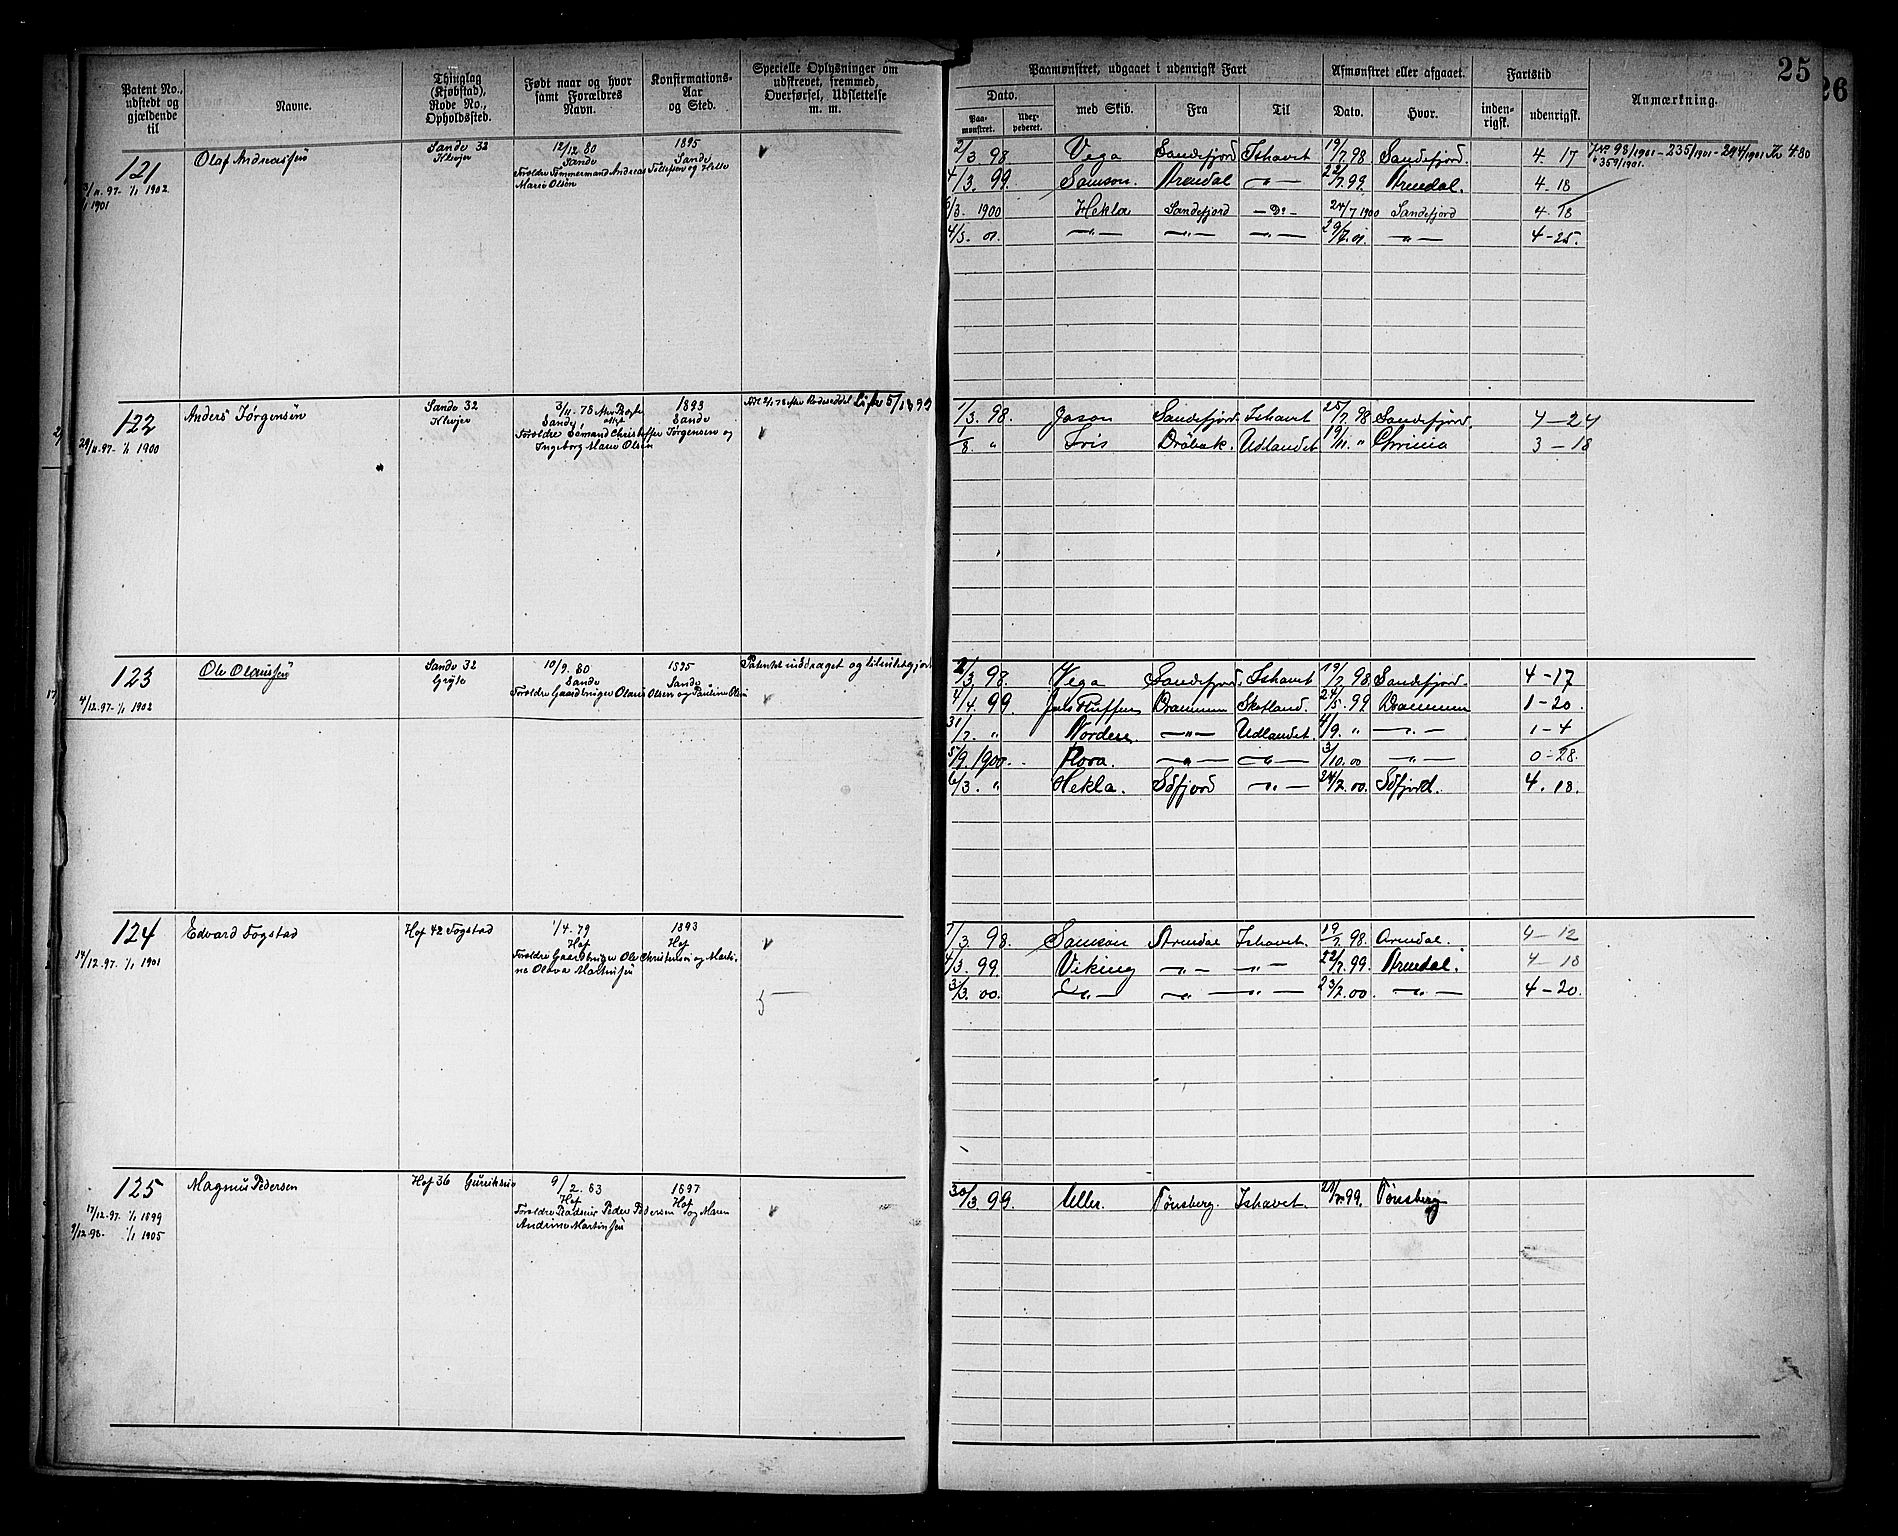 25
26
Patent No., udstedt og gjældende til
Navne.
Thinglag (Kjøbstad), Rode No., Opholdssted.
Født naar og hvor samt Forældres Navn.
Konfirmations-Aar og Sted.
Specielle Oplysninger om udskrevet, fremmed, Overførsel, Udslettelse m. m.
Paamønstret, udgaaet i udenrigsk Fart
Dato.
Paa-mønstret.
med Skib.
Fra
Til
Afmønstret eller afgaaet.
Dato.
Hvor.
Fartstid
inden-rigsk.
udenrigsk.
Anmærkning.
121 Olaf Andreassen Sande 32 12/12 80 1895
Klevjer Sande Sande
Forældre Tømmermand Andreas Tollefsen og Helle
Marie Olsen
/11.97- 1/1 1902
1901
2/3 98 Vega Sandefjord Ishavet 19/7 98 Sandefjord. 4. 17 98/1901 - 235/1901 - 294/1901 Kr 4.80
359/1901.
4/3. 99. Samson. Arendal —„— 22/7.99. Arendal. 4. 18
6/3. 1900 Hekla Sandefjord —Do— 24/7 1900 Sandefjord 4. 18
4/3. 01 —„— —„— —„— 29/7.01. —„— 4-25.
122 Anders Jørgensen Sande 32 3/11. 78 1893
Klevjer Sande Sande
Forældre Sømand Christoffer Jørgensen og
Ingeborg Marie Olsen
29/11.97- 1/1 1900
1/3. 98. Jason Sandefjord. Ishavet 25/7. 98 Sandefjord. 4-24
/8. „ Iris Drøbak. Udlandet 19/11. „ Chrinia 3-18
123 Ole Olaussen Sande 32 10/9. 80 1895 Patentet inddraget og
Sande Sande
Forældre Gaardbruger Olaus Olsen og Pauline Olsen
4/12.97- 1/1 1902
2/3. 98. Vega Sandefjord. Ishavet 19/7. 98. Sandefjord. 4-17
4/4. 99. Drammen Skotland. 24/5. 99 Drammen 1-20.
31/7. „ Norden. —„— Udlandet. 4/9. „ —„— 1-4
5/9. 1900. Flora. —„— —„— 3/10.00 —„— 0-28.
6/3. „ Hekla. Sdfjord —„— 24/7.00. Sdfjord. 4. 18.
124 Edvard Fogstad Hof 42 Fogstad 1/4.79 1893
Hof Hof
Forældre Gaardbruger Ole Christensen og Marti-
ne Olava Martinsen
14/12.97. 1/1 1901
5 —
7/3. 98. Samson Arendal Ishavet. 19/7. 98. Arendal. 4-12
4/3. 99 Viking —„— —„— 22/7.99. Arendal. 4-18
3/3. 00. —„— —„— —„— 23/7.00. —„— 4-20.
125 Magnus Pedersen Hof 36 9/2. 83 1897
Hof Hof
Forældre Peder Pedersen og Maren
Andrine Martinsen
17/12.97. 1/1 1899
/12.98. 1/1 1905
30/3. 99. Uller. Tønsberg. Ishavet. 99. Tønsberg